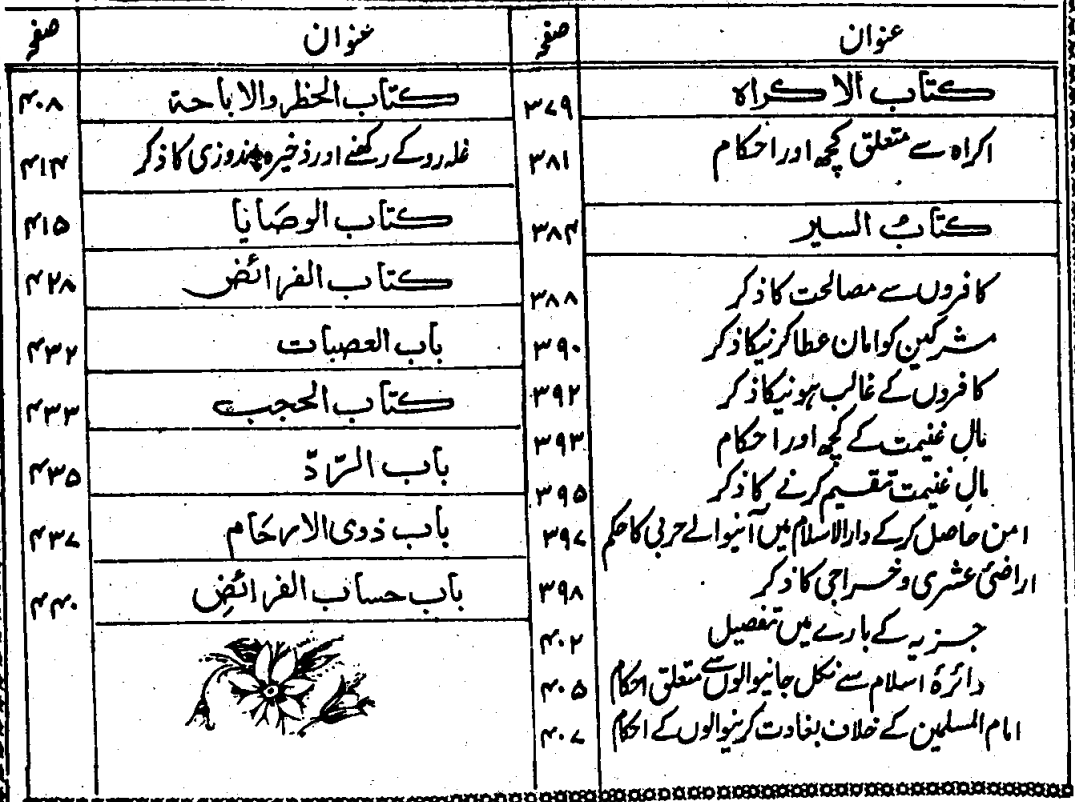 عنوان صفحہ
کتاب الاکراہ ۳۷۹
اکراہ سے متعلق کچھ اور احکام ۳۸۱
کتابُ السیر ۳۸۴
کافروں سے مصالحت کا ذکر ۳۸۸
مشرکین کو امان عطا کرنیکا ذکر ۳۹۰
کافروں کے غالب ہونیکا ذکر ۳۹۲
مالِ غنیمت کے کچھ اور احکام ۳۹۳
مالِ غنیمت تقسیم کرنے کا ذکر ۳۹۵
امن حاصل کرکے دارالاسلام میں آنیوالے حربی کا حکم ۳۹۷
اراضیٔ عشری و خراجی کا ذکر ۳۹۸
جزیہ کے بارے میں تفصیل ۴۰۲
دائرۂ اسلام سے نکل جانیوالوں سے متعلق احکام ۴۰۵
امام المسلمین کے خلاف بغاوت کرنیوالوں کے احکام ۴۰۷
عنوان صفحہ
کتاب الحظر والاباحۃ ۴۰۸
غلہ روکے رکھنے اور ذخیرہ اندوزی کا ذکر ۴۱۴
کتاب الوصَایا ۴۱۵
کتاب الفرائض ۴۲۸
باب العصبات ۴۳۲
کتاب الحجب ۴۳۳
باب الرّدّ ۴۳۵
باب ذوی الارحام ۴۳۷
باب حساب الفرائضِ ۴۴۰